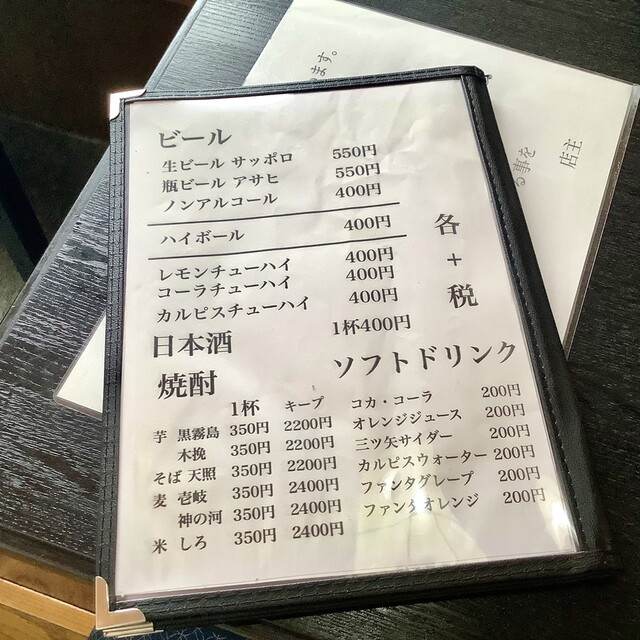 ビール
生ビール サッポロ 550円
瓶ビール アサヒ 550円
ノンアルコール 400円
ハイボール 400円
レモンチューハイ 400円
コーラチューハイ 400円
カルピスチューハイ 400円
各+税
日本酒 1杯400円
焼酎
1杯 キープ
芋 黒霧島 350円 2200円
木挽 350円 2200円
そば 天照 350円 2200円
麦 壱岐 350円 2400円
神の河 350円 2400円
米 しろ 350円 2400円
ソフトドリンク
コカ・コーラ 200円
オレンジジュース 200円
三ツ矢サイダー 200円
カルピスウォーター 200円
ファンタグレープ 200円
ファンタオレンジ 200円
ます。
る事を
店主